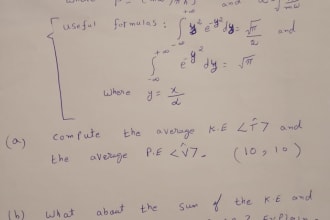 useful formulas: ∫_{-∞}^{+∞} y² e^{-y²} dy = √π/2 and
∫_{-∞}^{+∞} e^{-y²} dy = √π
where y = x/α
(a) compute the average K.E <T̂> and
the average P.E <V̂>. (10, 10)
(b) what about the sum of the K.E and